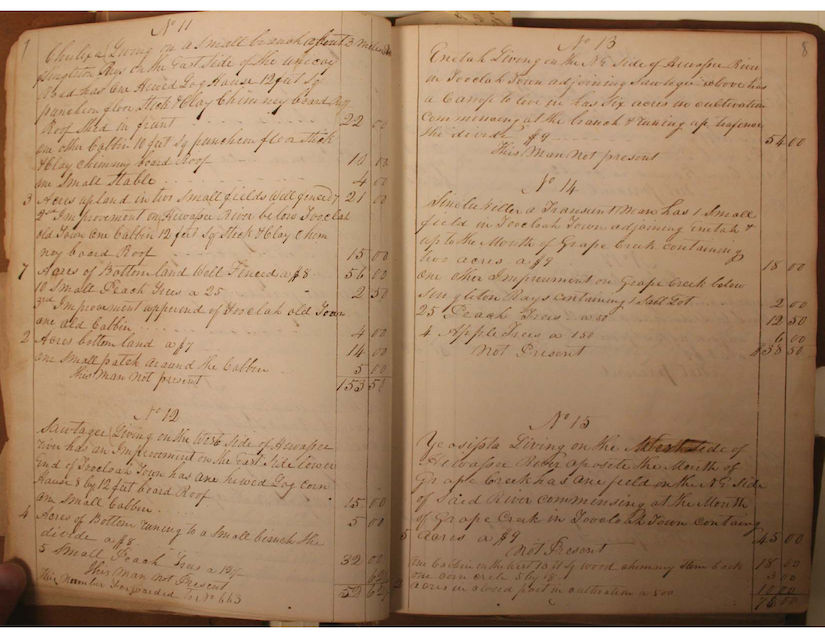 No 11
1 Chulixa Living on a Small branch about 3 Miles
Singleton Rays on the East Side of the
has one Hewed Log House 12 feet Sq
puncheon floor Stick & Clay Chimney board
Roof Shed in frunt 22 00
one other Cabbin 10 feet Sq puncheon floor Stick
& Clay chimney board Roof 10 00
one Small Stable 4 00
3 Acres upland in two Small fields Well fenced 7 21 00
2nd Improvement on Hewassee River below Tooclah
old Town one Cabbin 12 feet Sq Stick & Clay Chim
ney board Roof 15 00
7 Acres of Bottom land Well Fenced a $8 56 00
10 Small Peach Trees a 25 2 50
3rd Improvement upper end of Tooclah old Town
one old Cabbin 4 00
2 Acres bottom land a $7 14 00
one Small patch around the Cabbin 5 00
This Man Not present 153 50
No 12
Sawtagee Living on the West Side of Hewassee
river has an Improvement on the East Side lower
End of Tooclah Town has one hewed Log corn
house 8 by 12 feet board Roof 15 00
one Small Cabbin 5 00
4 Acres of Bottom runing to a small branch the
divide a $8 32 00
5 Small Peach Trees a 12½ 62½
This Man not Present 52 62½
This Number Forwarded to No 663
8
No 13
Enetah Living on the NE Side of Hewassee River
in Tooclah Town adjoining Sawtagee above has
a Camp to live in has Six acres in cultivation
Commensing at the branch & runing up
the divide $9 54 00
This Man Not present
No 14
a Transient Man has 1 Small
field in Tooclah Town adjoining Enetah &
up to the Mouth of Grape Creek containing
two acres a $9 18 00
one other Improvement on Grape Creek below
Singleton Rays containing 1 Lot 2 00
25 Peach Trees a 50 12 50
4 Apple Trees a 150 6 00
Not Present $38 50
No 15
Living on the Side of
Hewassee River aposete the Mouth of
Grape Creek has one field on the NE Side
of Said River commensing at the Mouth
of Grape Creek in Tooclah Town containg
5 acres a $9 45 00
Not Present
one Cabbin on the West 13 ft Sq wood chimney stone back 18 00
one corn crib 5 by 8 3 00
2 acres in closed part in cultivation a 500 10 00
76 00